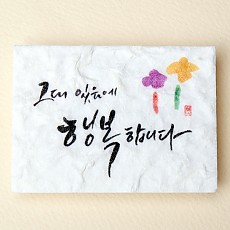 그대 있음에
행복합니다